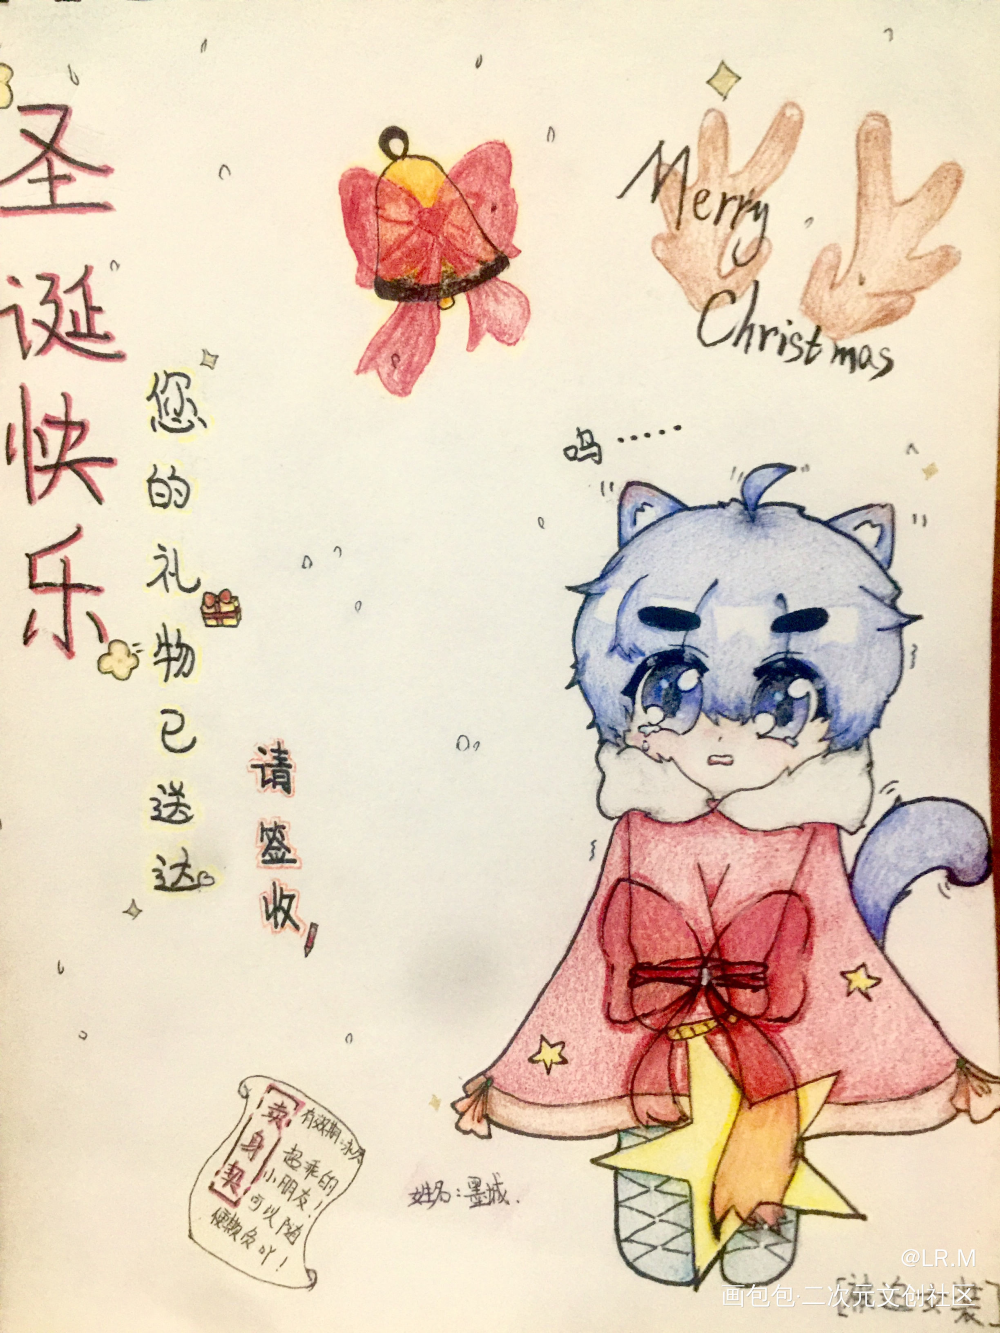 圣诞快乐
您的礼物已送达
请签收
Merry
Christmas
呜……
卖身契
有效期:永久
超乖的
小朋友!
可以随
便欺负吖!
姓名:墨城.
@LR.M
画包包·二次元文创社区
[被迫女装]